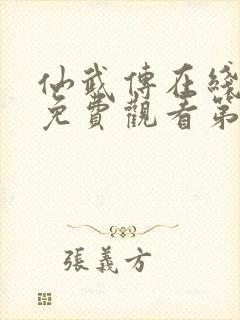 仙武傳在綫
免費觀看第
張義方